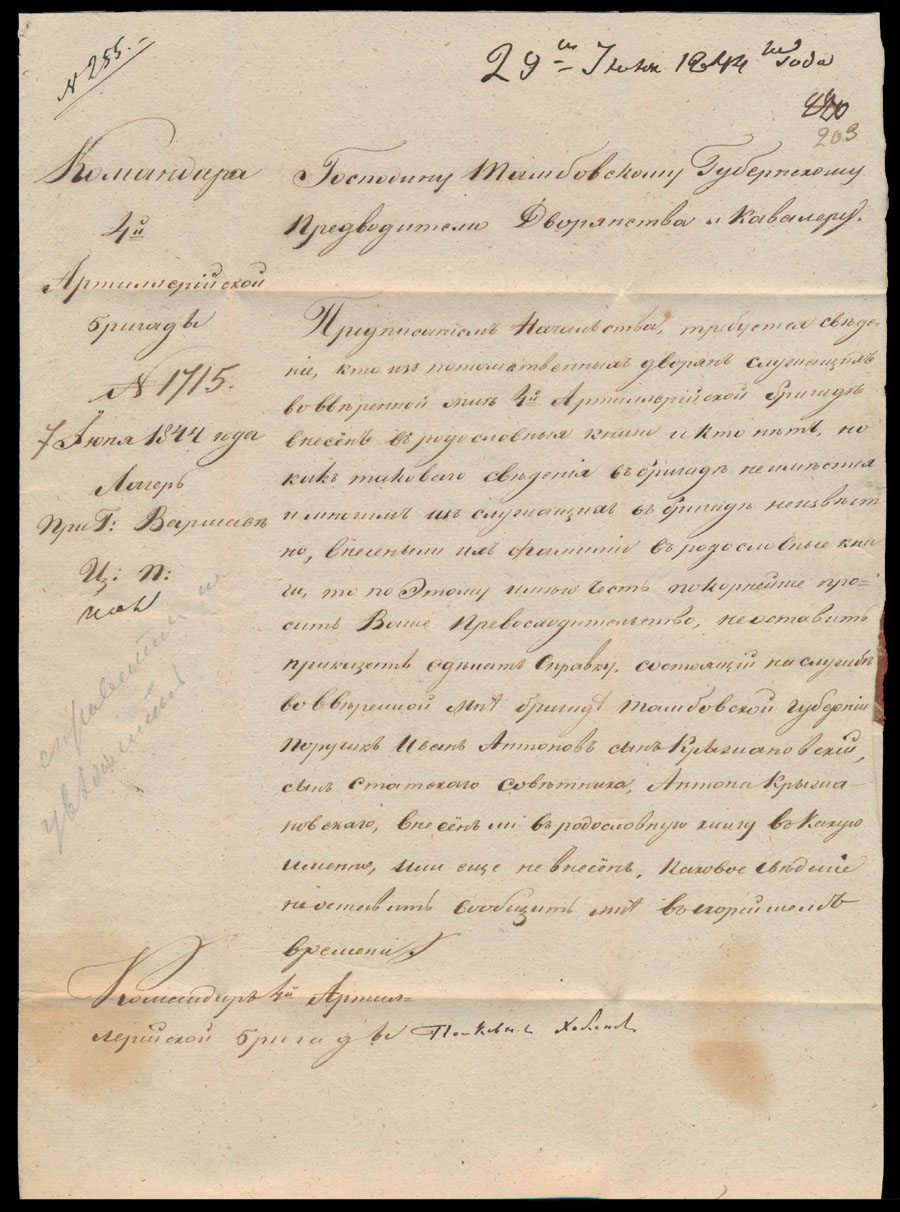 N 255.
29го Июня 1844го года
203
Командира
4й
Артиллерійской
бригады
N 1715.
7 Іюня 1844 года
Лагерь
При Г: Варшавѣ
Ц: П:
Господину Тамбовскому Губернскому
Предводителю Дворянства и Кавалеру.
Предписаніемъ Начальства, требуется свѣде-
ніе, кто изъ потомственныхъ дворянъ служащихъ
во ввѣренной мнѣ 4й Артиллерійской бригадѣ
внесенъ въ родословныя книги и кто нѣтъ, но
какъ таковаго свѣденія въ бригадѣ не имѣется
и многимъ изъ служащихъ въ бригадѣ неизвѣст
но, внесеными ихъ фамиліи въ родословные кни
ги, то по Этому имѣю Честь покорнейше про-
сить Ваше Превосходительство, не оставить
приказать сдѣлать Справку, состоящій на службѣ
во ввѣренной мнѣ бригадѣ Тамбовской Губерніи
Поручикъ Иванъ Антоновъ сынъ Крыжановскій,
сынъ Статскаго Совѣтника, Антона Крыжа-
новскаго, внесенъ ли въ родословную книгу въ Какую
именно, или еще не внесенъ, Каковое свѣденіе
не оставить Сообщить мнѣ въ скорѣйшемъ
времени.
справиться и
увѣдомить
Командиръ 4й Артил-
лерійской бригады Полковникъ